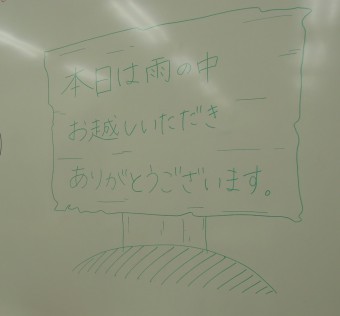 本日は雨の中
お越しいただき
ありがとうございます。